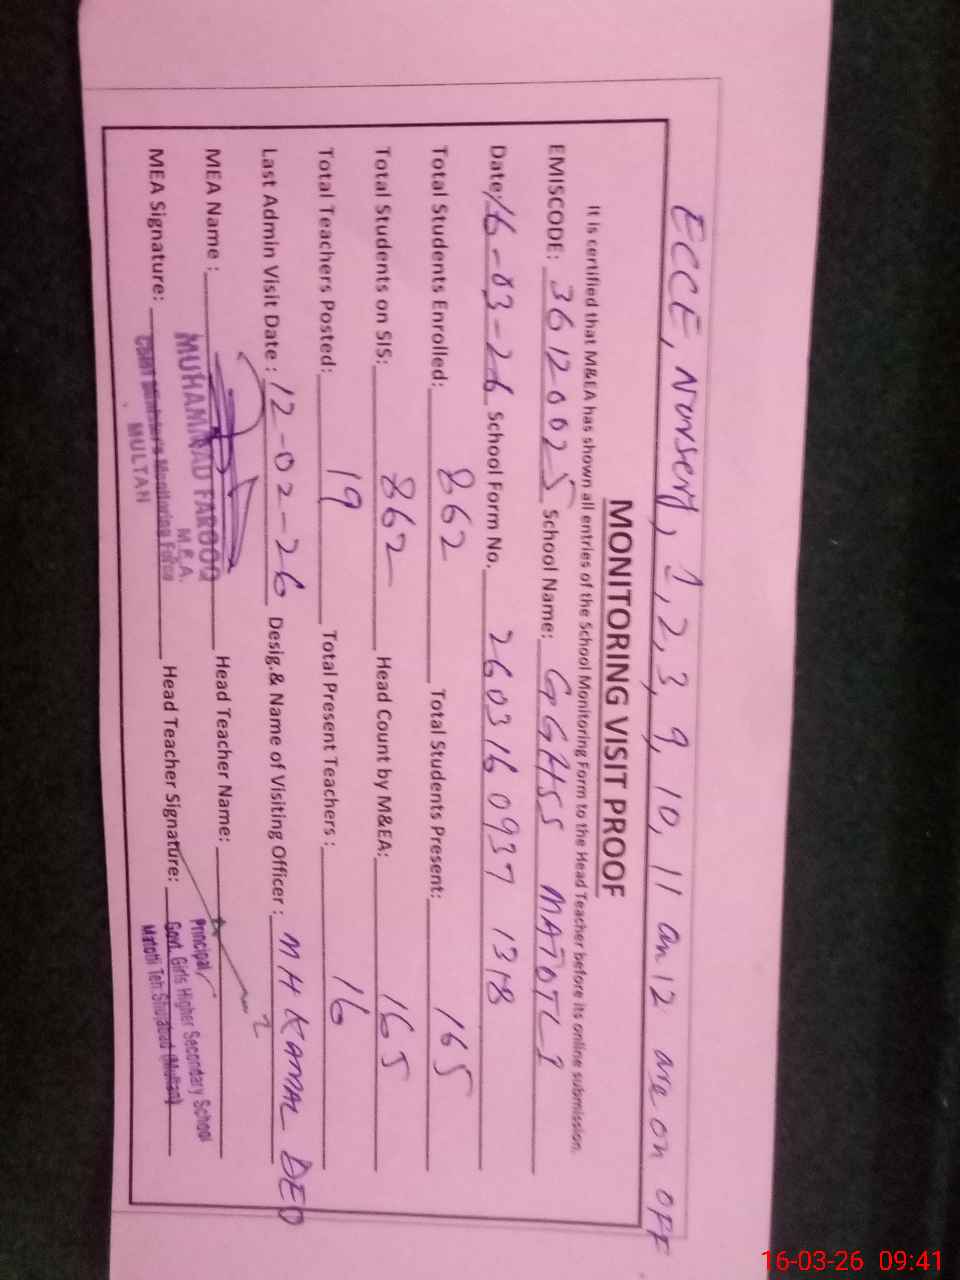 ECCE, Nursery, 1, 2, 3, 9, 10, 11 an 12 are on OFF
MONITORING VISIT PROOF
It is certified that M&EA has shown all entries of the School Monitoring Form to the Head Teacher before its online submission.
EMISCODE: 36120025 School Name: GGHSS MATOTLI
Date: 16-03-26 School Form No. 260316 0937
Total Students Enrolled: 862 Total Students Present: 165
Total Students on SIS: 862 Head Count by M&EA: 165
Total Teachers Posted: 19 Total Present Teachers : 16
Last Admin Visit Date : 12-02-26 Desig.& Name of Visiting Officer : M H KAMAL DEO
MEA Name : Head Teacher Name:
MUHAMMAD FAROOQ
M.E.A.
MEA Signature: Head Teacher Signature:
Monitoring Force
MULTAN
Principal
Govt. Girls Higher Secondary School
Matotli Teh Shujabad (Multan)
16-03-26 09:41